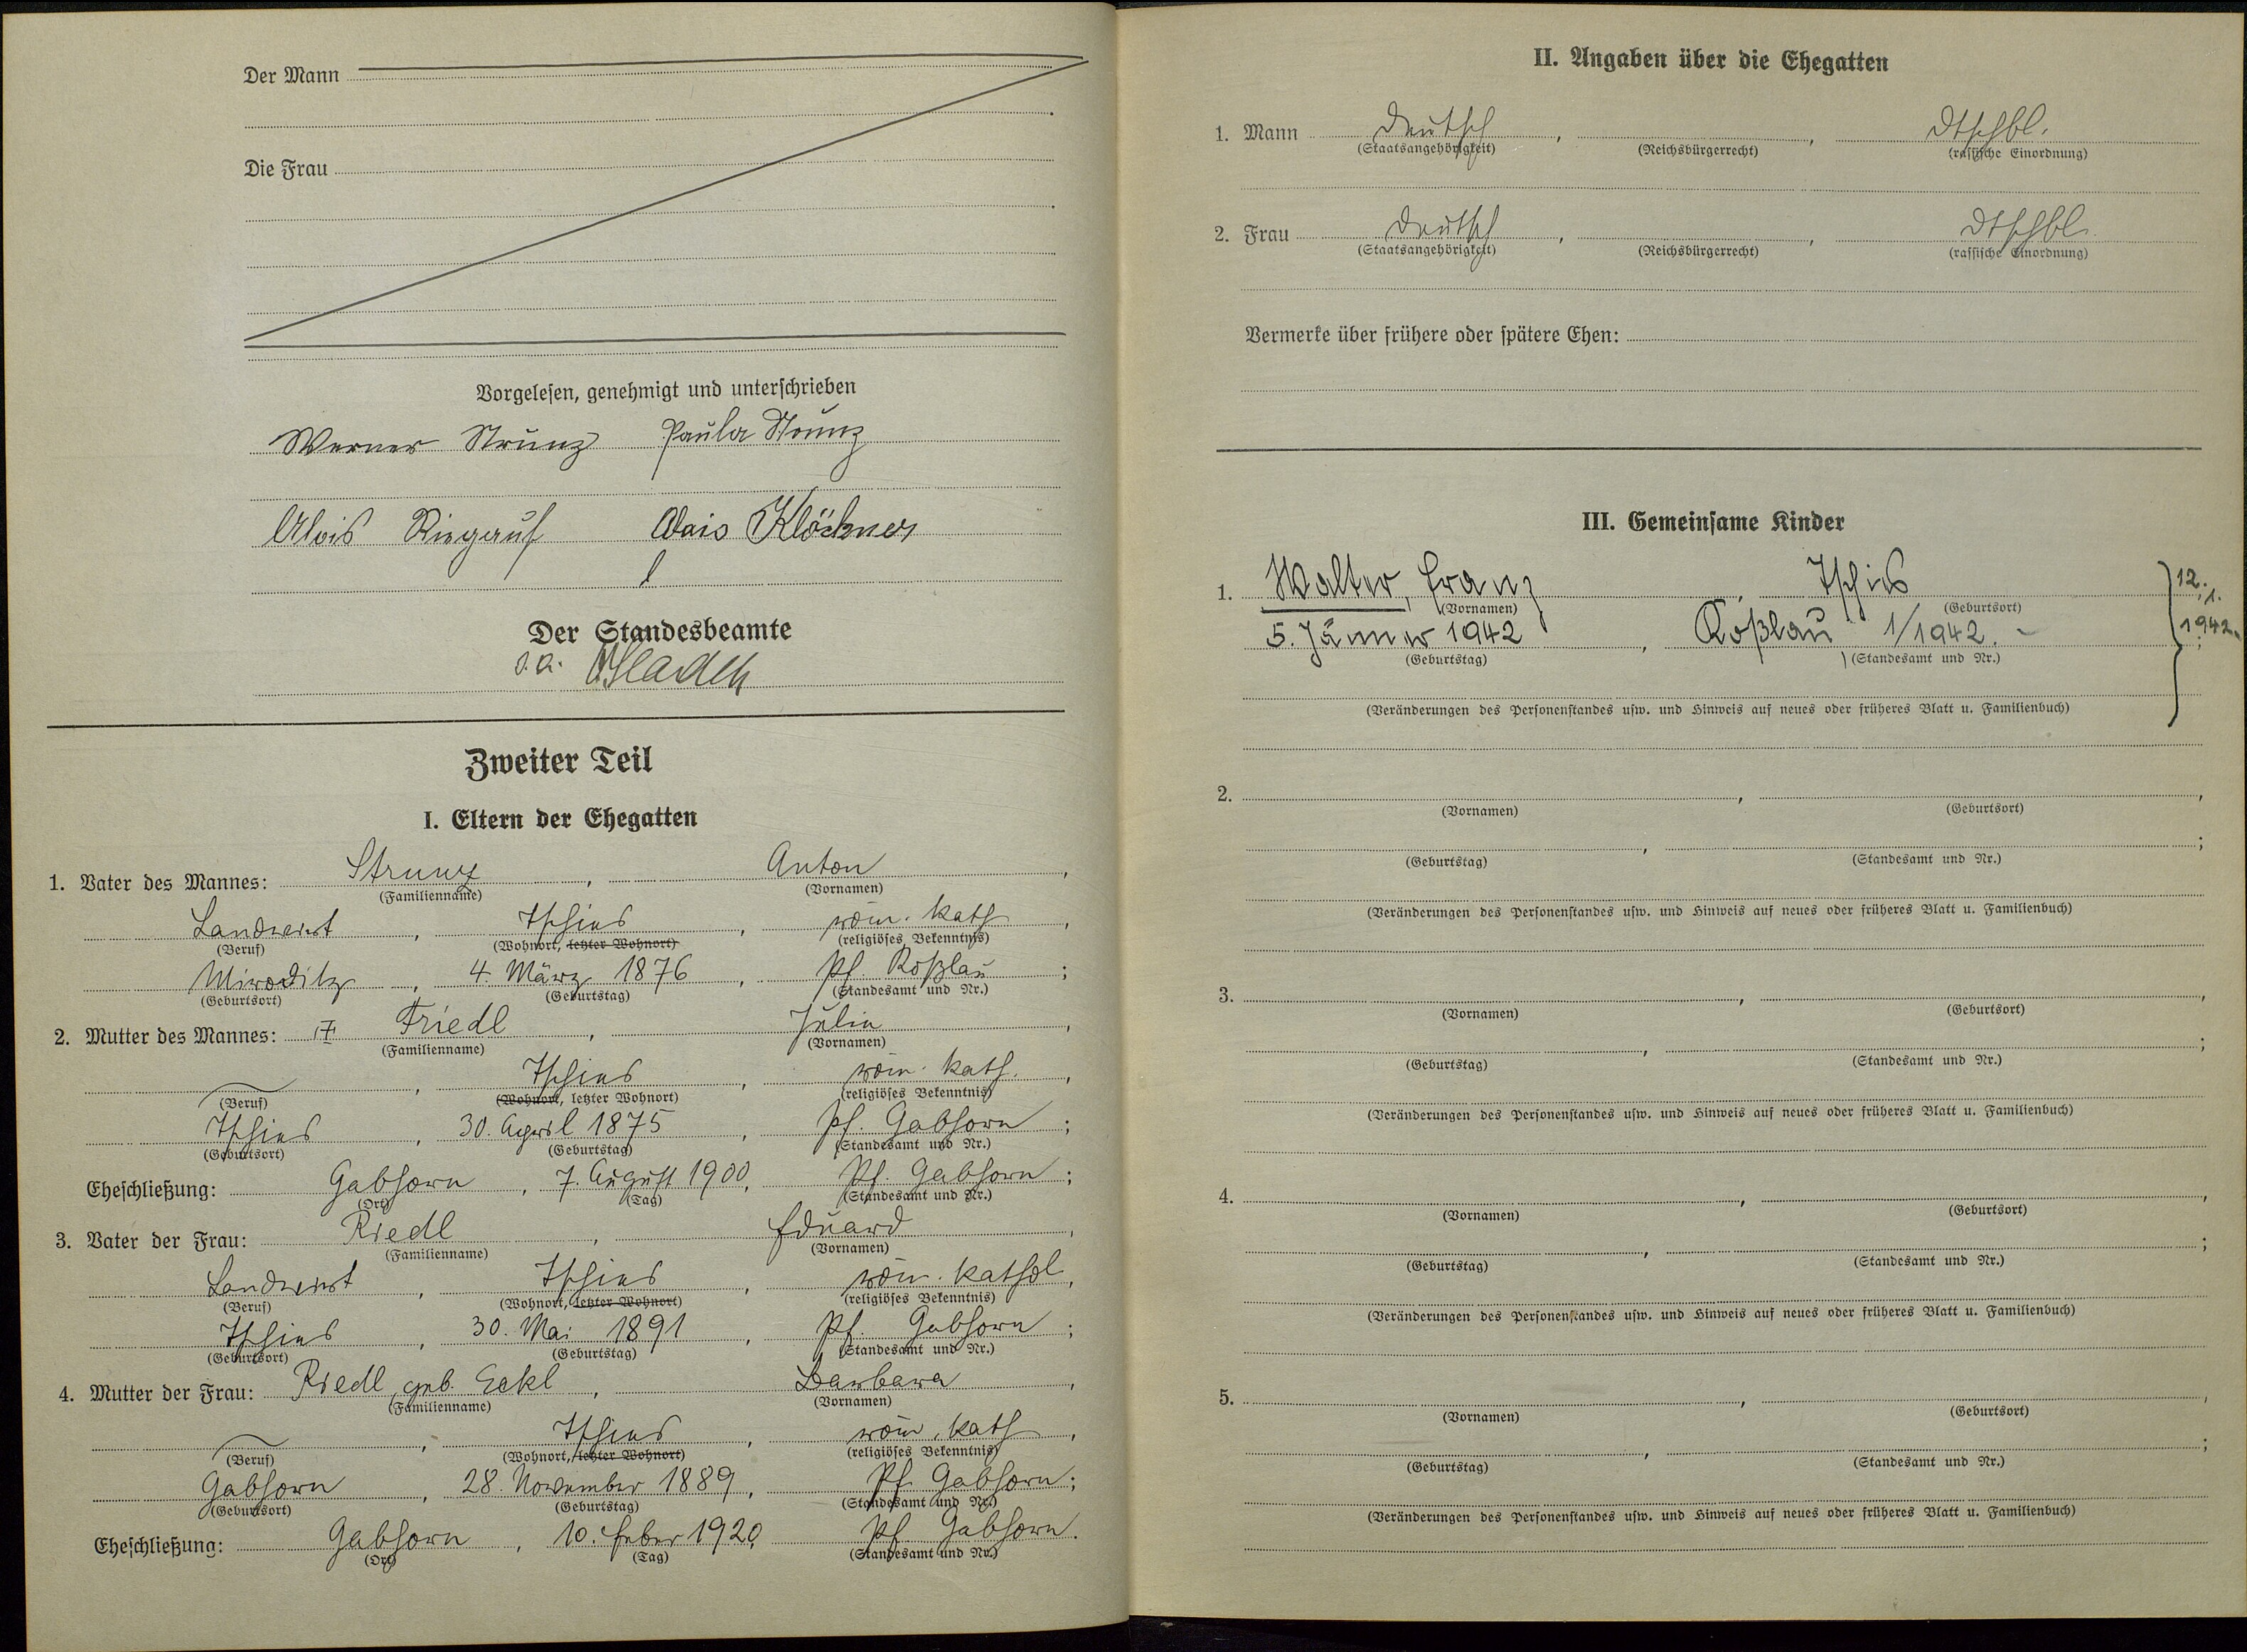 Der Mann
Die Frau
Vorgelesen, genehmigt und unterschrieben
Werner Strunz Paula Strunz
Alois Riegauf Alois Klöckner
Der Standesbeamte
Zweiter Teil
I. Eltern der Ehegatten
1. Vater des Mannes: Strunz, Anton,
(Familienname) (Vornamen)
Landwirt, Tschies, röm. kath,
(Beruf) (Wohnort, letzter Wohnort) (religiöses Bekenntnis)
Miroditz, 4. März 1876, Pf. Roßlau;
(Geburtsort) (Geburtstag) (Standesamt und Nr.)
2. Mutter des Mannes: Friedl, Julia,
(Familienname) (Vornamen)
, Tschies, röm. kath.,
(Beruf) (Wohnort, letzter Wohnort) (religiöses Bekenntnis)
Tschies, 30. April 1875, Pf. Gabhorn;
(Geburtsort) (Geburtstag) (Standesamt und Nr.)
Eheschließung: Gabhorn, 7. August 1900, Pf. Gabhorn;
(Ort) (Tag) (Standesamt und Nr.)
3. Vater der Frau: Riedl, Eduard,
(Familienname) (Vornamen)
Landwirt, Tschies, röm. kathol,
(Beruf) (Wohnort, letzter Wohnort) (religiöses Bekenntnis)
Tschies, 30. Mai 1891, Pf. Gabhorn;
(Geburtsort) (Geburtstag) (Standesamt und Nr.)
4. Mutter der Frau: Riedl, geb. Eckl, Barbara,
(Familienname) (Vornamen)
, Tschies, röm. kath,
(Beruf) (Wohnort, letzter Wohnort) (religiöses Bekenntnis)
Gabhorn, 28. November 1889, Pf. Gabhorn;
(Geburtsort) (Geburtstag) (Standesamt und Nr.)
Eheschließung: Gabhorn, 10. Feber 1920, Pf. Gabhorn.
(Ort) (Tag) (Standesamt und Nr.)
II. Angaben über die Ehegatten
1. Mann Deutsch, , Dtschbl.
(Staatsangehörigkeit) (Reichsbürgerrecht) (rassische Einordnung)
2. Frau Deutsch, , Dtschbl.
(Staatsangehörigkeit) (Reichsbürgerrecht) (rassische Einordnung)
Vermerke über frühere oder spätere Ehen:
III. Gemeinsame Kinder
1. Walter, Franz, Tschies 12.1.
(Vornamen) (Geburtsort)
5. Jänner 1942, Roßlau 1/1942. 1942.
(Geburtstag) (Standesamt und Nr.)
(Veränderungen des Personenstandes usw. und Hinweis auf neues oder früheres Blatt u. Familienbuch)
2. , ,
(Vornamen) (Geburtsort)
, ;
(Geburtstag) (Standesamt und Nr.)
(Veränderungen des Personenstandes usw. und Hinweis auf neues oder früheres Blatt u. Familienbuch)
3. , ,
(Vornamen) (Geburtsort)
, ;
(Geburtstag) (Standesamt und Nr.)
(Veränderungen des Personenstandes usw. und Hinweis auf neues oder früheres Blatt u. Familienbuch)
4. , ,
(Vornamen) (Geburtsort)
, ;
(Geburtstag) (Standesamt und Nr.)
(Veränderungen des Personenstandes usw. und Hinweis auf neues oder früheres Blatt u. Familienbuch)
5. , ,
(Vornamen) (Geburtsort)
, ;
(Geburtstag) (Standesamt und Nr.)
(Veränderungen des Personenstandes usw. und Hinweis auf neues oder früheres Blatt u. Familienbuch)